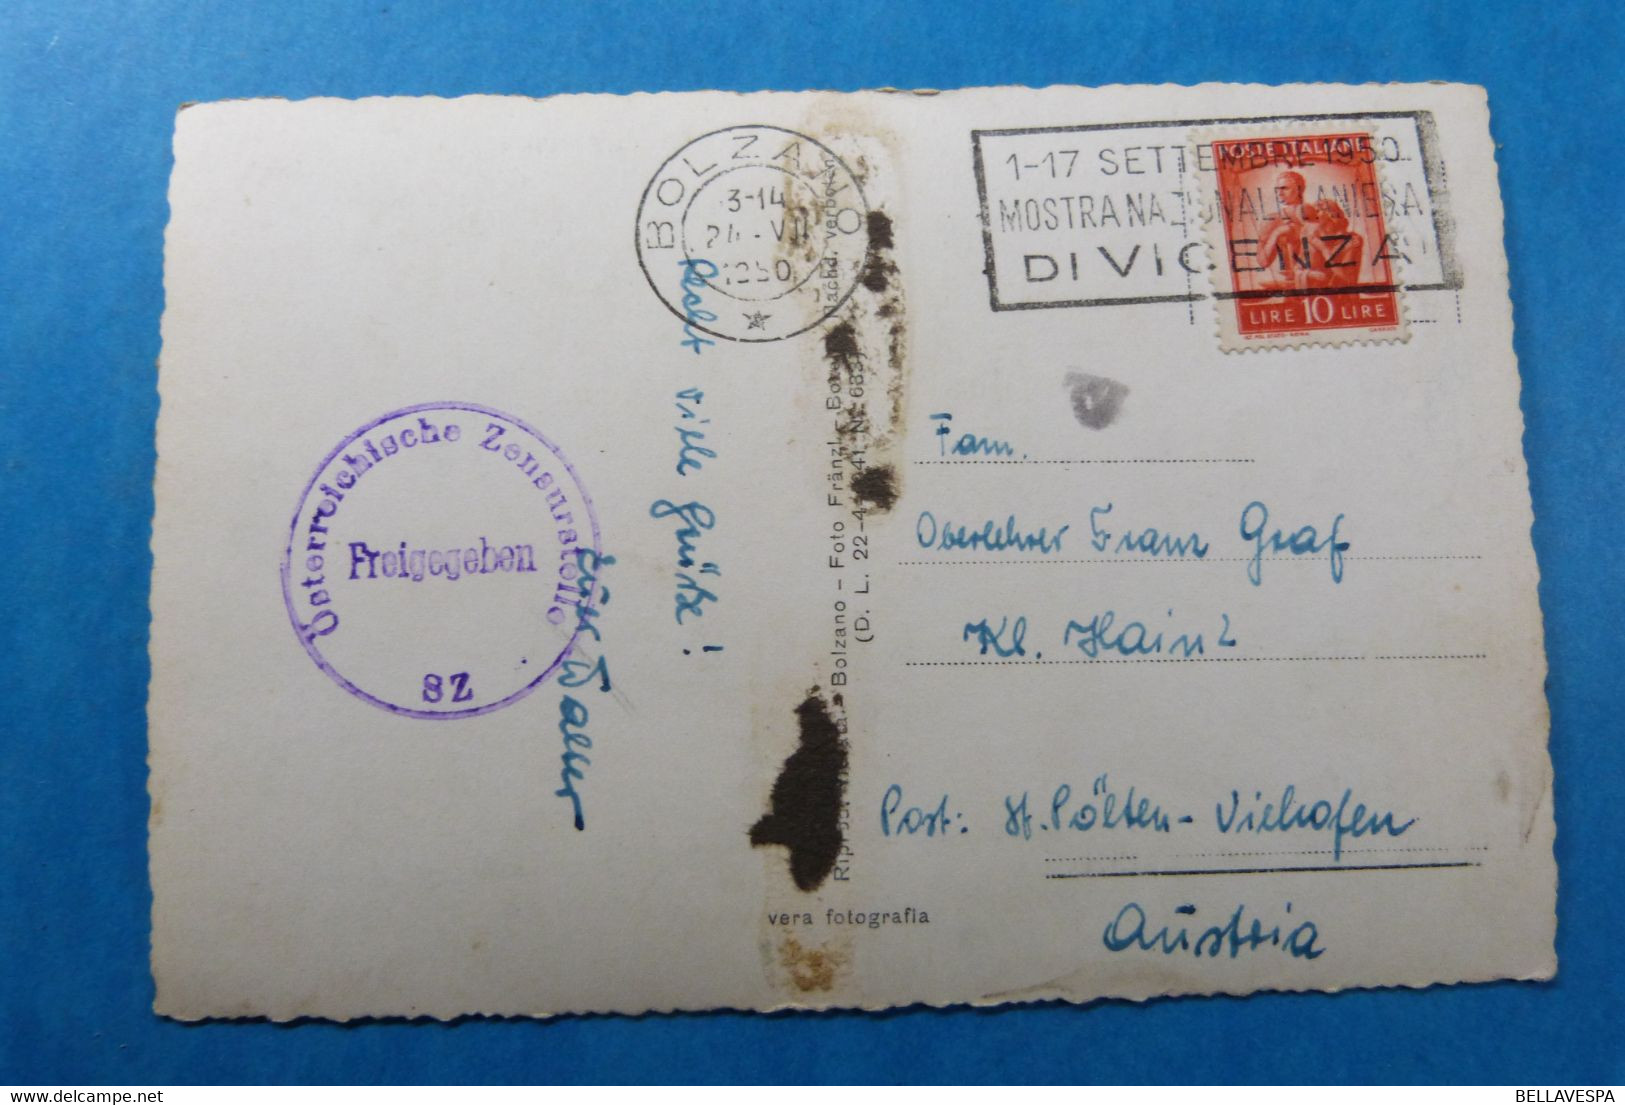 BOLZANO
13-14
24-VII
1950
1-17 SETTEMBRE 1950
MOSTRA NAZIONALE LANIERA
DI VICENZA
POSTE ITALIANE
LIRE 10 LIRE
Recht viele Grüße!
Österreichische Zensurstelle
Freigegeben
SZ
Nachd. verboten
Bolzano - Foto Fränzl - Bozen
(D. L. 22-4-1941 N. 633)
vera fotografia
Fam.
Oberlehrer Franz Graf
Kl. Hain 2
Post: St. Pölten - Viehofen
Austria
BELLAVESPA